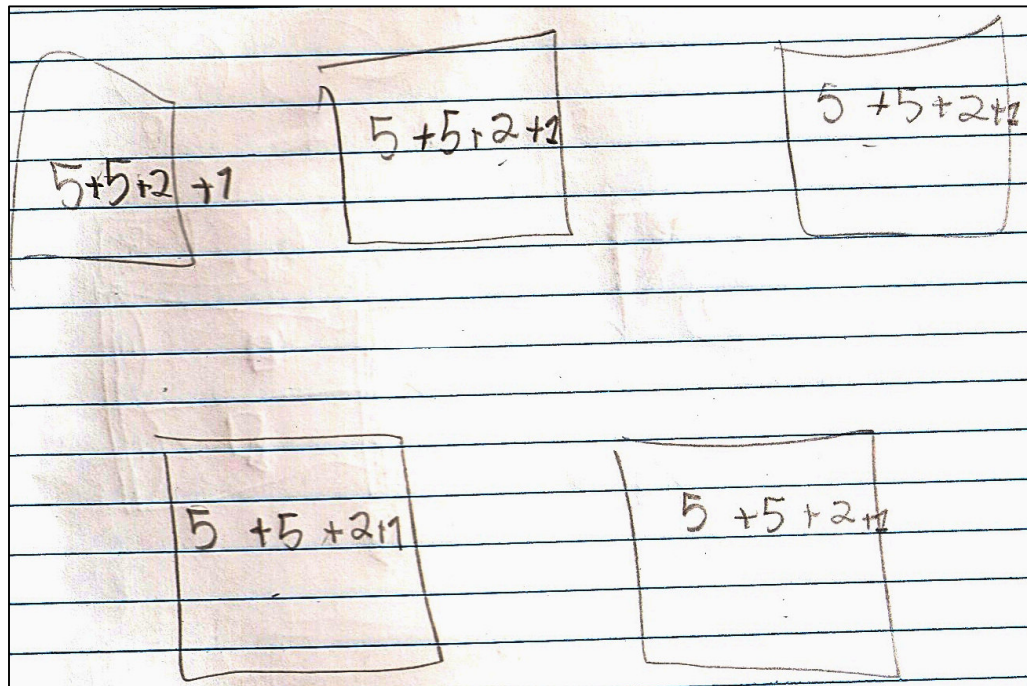 5+5+2+1
5+5+2+1
5+5+2+1
5+5+2+1
5+5+2+1